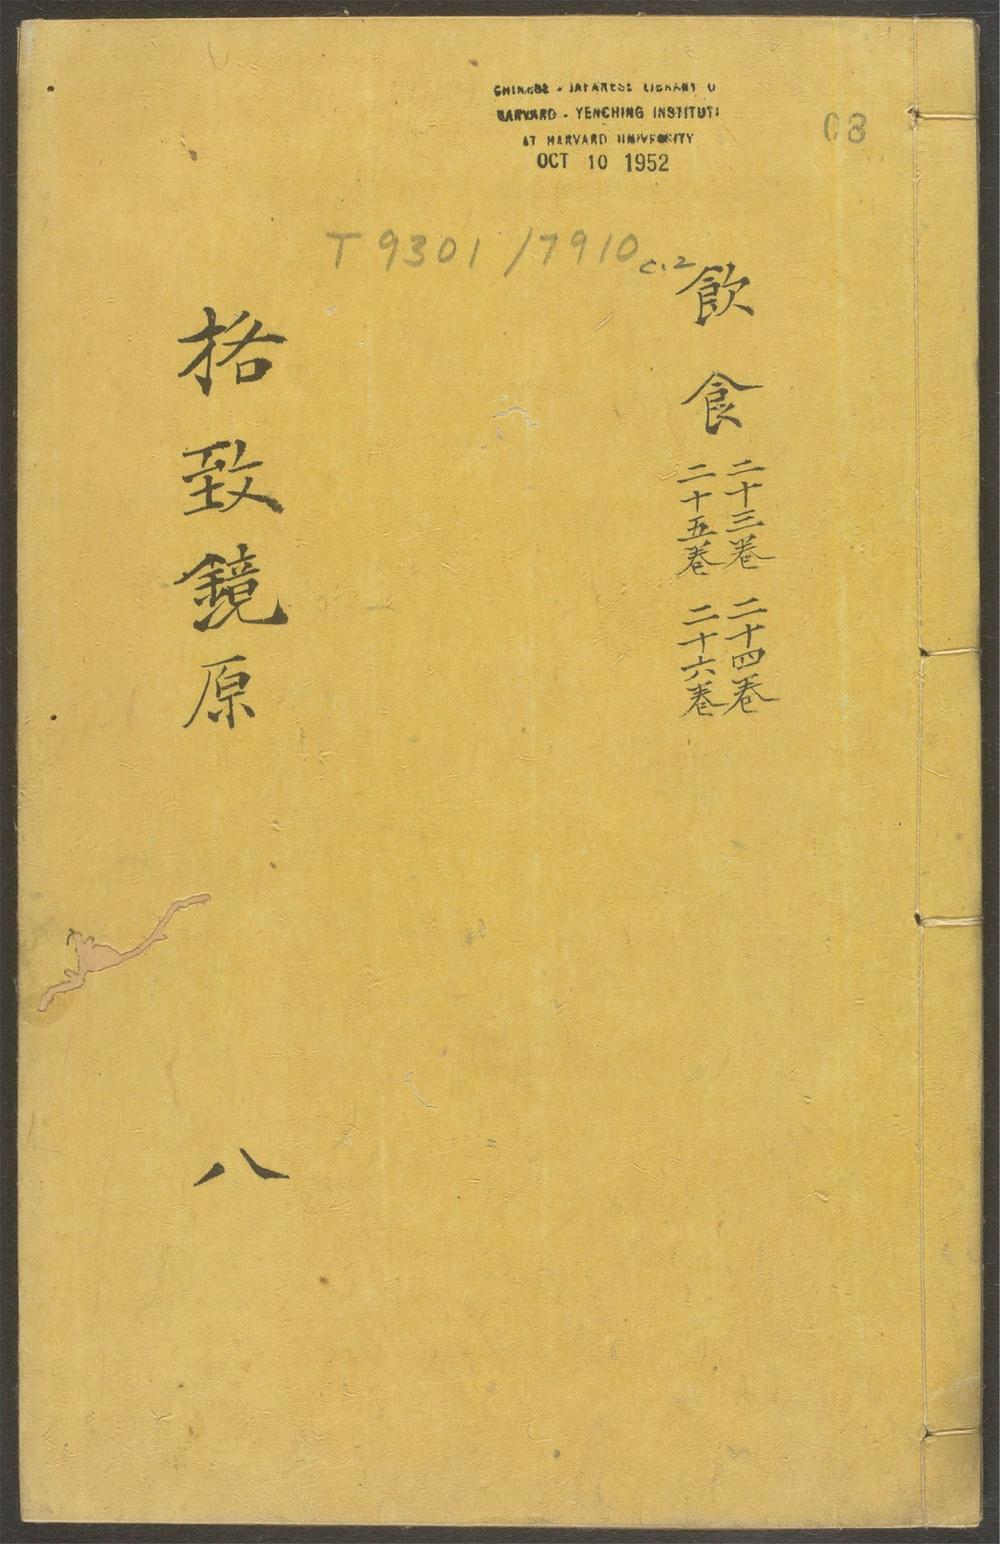 CHINESE - JAPANESE LIBRARY
HARVARD - YENCHING INSTITUTE
AT HARVARD UNIVERSITY
OCT 10 1952
08
T 9301 / 7910 c.2
飲食
二十三卷 二十四卷
二十五卷 二十六卷
格致鏡原
八